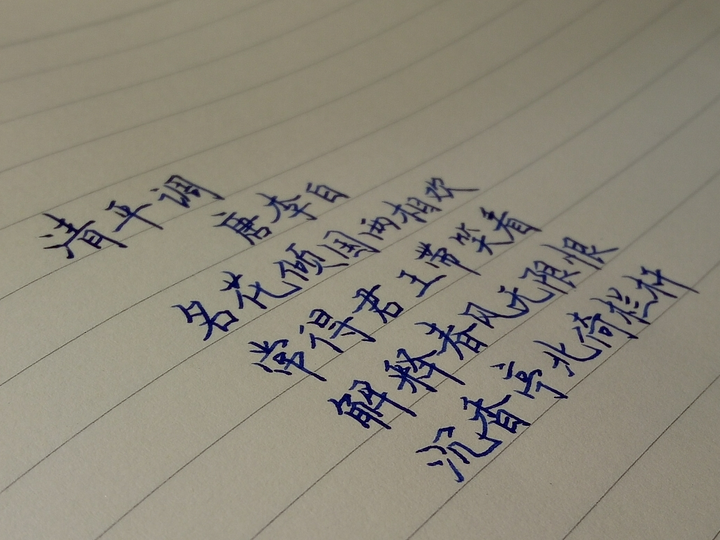 清平调
唐李白
名花倾国两相欢
常得君王带笑看
解释春风无限恨
沉香亭北倚栏杆